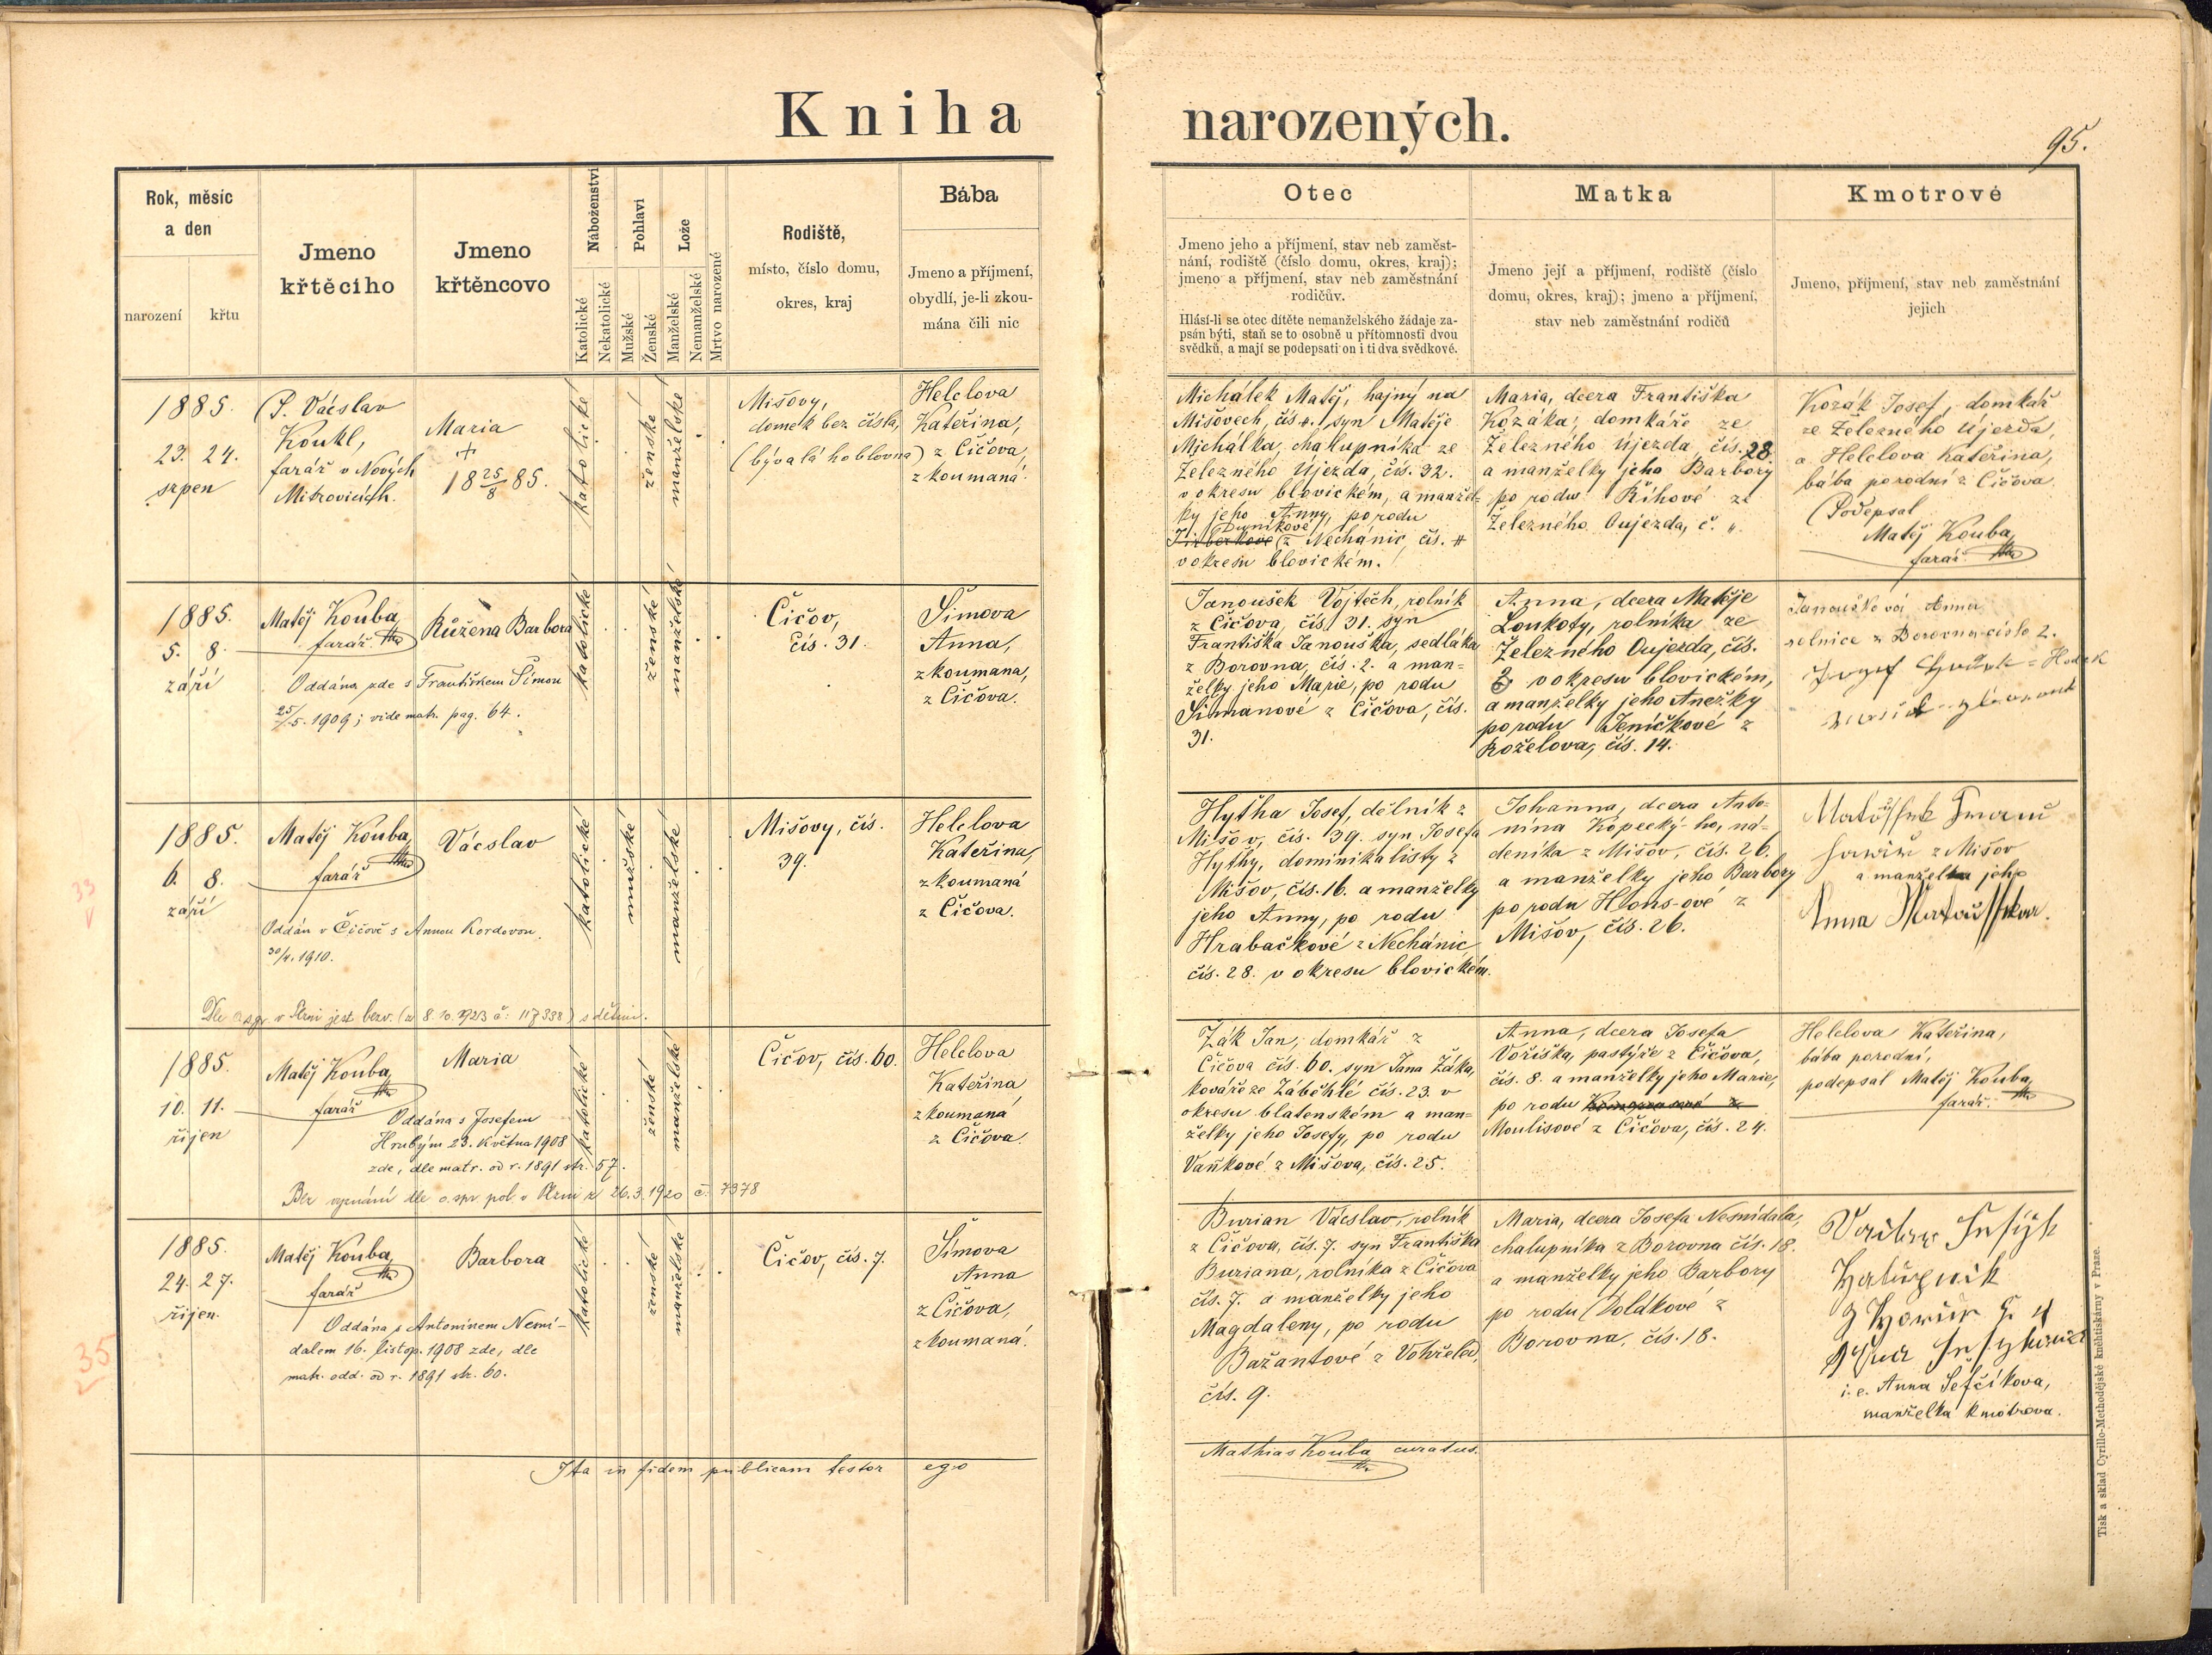 Kniha narozených.
95.
Rok, měsíc
a den
narození
křtu
Jmeno
křtěcího
Jmeno
křtěncovo
Náboženství
Katolické
Nekatolické
Pohlaví
Mužské
Ženské
Lože
Manželské
Nemanželské
Mrtvo narozené
Rodiště,
místo, číslo domu,
okres, kraj
Bába
Jmeno a příjmení,
obydlí, je-li zkou-
mána čili nic
Otec
Jmeno jeho a příjmení, stav neb zaměst-
nání, rodiště (číslo domu, okres, kraj);
jmeno a příjmení, stav neb zaměstnání
rodičův.
Hlásí-li se otec dítěte nemanželského žádaje za-
psán býti, staň se to osobně u přítomnosti dvou
svědků, a mají se podepsati on i ti dva svědkové.
Matka
Jmeno její a příjmení, rodiště (číslo
domu, okres, kraj); jmeno a příjmení,
stav neb zaměstnání rodičů
Kmotrové
Jmeno, příjmení, stav neb zaměstnání
jejich
1885.
23. 24.
srpen
P. Václav
Koukl,
farář v Nových
Mitrovicích.
Maria
+
18 25/8 85.
katolické
ženské
manželské
Mišovy,
domek bez čísla,
(bývalá hoblovna)
Helclova
Kateřina,
z Čičova,
zkoumaná.
Michálek Matěj, hajný na
Mišovech, čís. „. syn Matěje
Michálka, chalupníka ze
Železného Újezda, čís. 32.
v okresu blovickém, a manžel-
ky jeho Anny, po rodu
z Nechánic, čís. „
v okresu blovickém.
Maria, dcera Františka
Kozáka, domkáře ze
Železného Újezda, čís. 28.
a manželky jeho Barbory
po rodu Říhové ze
Železného Oujezda, č. „
Kozák Josef, domkář
ze Železného Újezda,
a Helclova Kateřina,
bába porodní z Čičova.
Podepsal
Matěj Kouba,
farář.
1885.
5. 8.
září
Matěj Kouba,
farář
Růžena Barbora
Oddána zde s Františkem Šimou
25/5. 1909; vide matr. pag. 64.
katolické
ženské
manželské
Čičov,
čís. 31.
Šimova
Anna,
zkoumana,
z Čičova.
Janoušek Vojtěch, rolník
z Čičova, čís. 31. syn
Františka Janouška, sedláka
z Borovna, čís. 2. a man-
želky jeho Marie, po rodu
Šimanové z Čičova, čís.
31.
Anna, dcera Matěje
Loukoty, rolníka ze
Železného Oujezda, čís.
v okresu blovickém,
a manželky jeho Anežky
po rodu Jeníčkové z
Roželova, čís. 14.
Janoušková Anna
rolnice z Borovna číslo 2.
1885.
6. 8.
září
33
Matěj Kouba,
farář
Václav
Oddán v Čičově s Annou Kordovou
30/4. 1910.
Dle o.sp. v Plzni jest bezv. (z 8.10.1923 č: 117338) s dětmi.
katolické
mužské
manželské
Mišovy, čís.
39.
Helclova
Kateřina,
zkoumaná
z Čičova.
Hytha Josef, dělník z
Mišov, čís. 39. syn Josefa
Hythy, dominikalisty z
Mišov, čís. 16. a manželky
jeho Anny, po rodu
Hrabačkové z Nechánic
čís. 28. v okresu blovickém.
Johanna, dcera Anto-
nína Kopecký-ho, ná-
deníka z Mišov, čís. 26.
a manželky jeho Barbory
po rodu Hlons-ové z
Mišov, čís. 26.
z Mišov
a manželka jeho
Anna
1885.
10. 11.
říjen
Matěj Kouba,
farář
Maria
Oddána s Josefem
Hrubým 23. května 1908
zde, dle matr. od r. 1891 str. 57.
Bez vyznání dle o. spr. pol. v Plzni z 26.3.1920 č. 7378
katolické
ženské
manželské
Čičov, čís. 60.
Helclova
Kateřina
zkoumaná
z Čičova.
Žák Jan, domkář z
Čičova čís. 60. syn Jana Žáka,
kováře ze Záběhlé čís. 23. v
okresu blatenském a man-
želky jeho Josefy, po rodu
Vaňkové z Mišova, čís. 25.
Anna, dcera Josefa
Voříška, pastýře z Čičova,
čís. 8. a manželky jeho Marie,
po rodu
Moulisové z Čičova, čís. 24.
Helclova Kateřina,
bába porodní,
podepsal Matěj Kouba,
farář.
1885.
24. 27.
říjen.
35
Matěj Kouba,
farář
Barbora
Oddána s Antonínem Nesmí-
dalem 16. listop. 1908 zde, dle
matr. odd. od r. 1891 str. 60.
katolické
ženské
manželské
Čičov, čís. 7.
Šimova
Anna
z Čičova,
zkoumaná.
Burian Václav, rolník
z Čičova, čís. 7. syn Františka
Buriana, rolníka z Čičova
čís. 7. a manželky jeho
Magdaleny, po rodu
Bažantové z Vohřeled,
čís. 9.
Maria, dcera Josefa Nesmídala,
chalupníka z Borovna čís. 18.
a manželky jeho Barbory
po rodu Voldkové z
Borovna, čís. 18.
i. e. Anna Šefčíkova,
manželka kmotrova.
Ita in fidem publicam testor ego
Mathias Kouba curatus.
Tisk a sklad Cyrillo-Methodějské knihtiskárny v Praze.